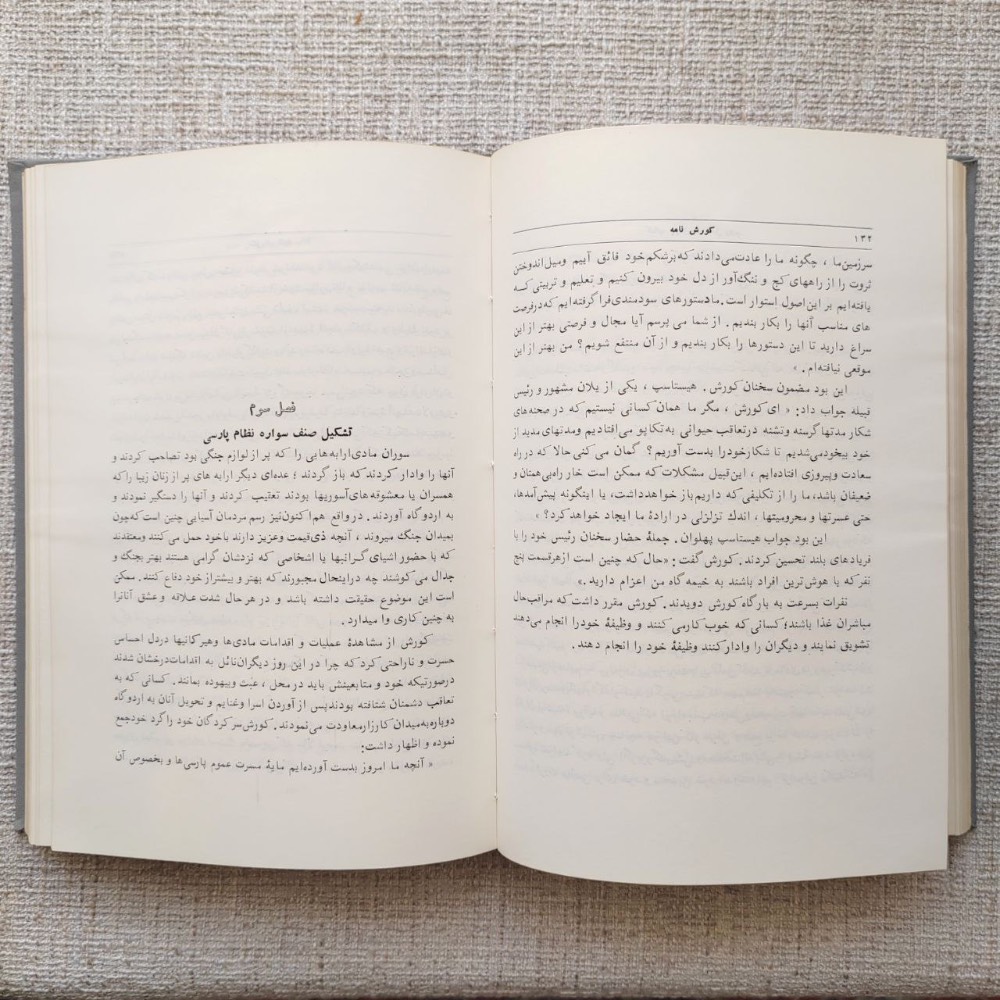 ۱۳۲
کورش نامه
سرزمین‌ما ، چگونه ما را عادت‌می‌دادند که‌برشکم‌خود فائق آییم ومیل‌اندوختن
ثروت را از راههای کج و ننگ‌آور از دل خود بیرون کنیم و تعلیم و تربیتی که
یافته‌ایم بر این‌اصول استوار است. مادستورهای سودمندی‌فرا گرفته‌ایم که‌درفرصت
های مناسب آنها را بکار بندیم . از شما می پرسم آیا مجال و فرصتی بهتر از این
سراغ دارید تا این دستورها را بکار بندیم و از آن منتفع شویم؟ من بهتر از این
موقعی نیافته‌ام . »
این بود مضمون سخنان کورش . هیستاسپ ، یکی از یلان مشهور و رئیس
قبیله جواب داد: « ای‌کورش ، مگر ما همان کسانی نیستیم که در صحنه‌های
شکار مدتها گرسنه وتشنه درتعاقب حیوانی به‌تکاپو می‌افتادیم ومدتهای مدید از
خود بیخودمی‌شدیم تا شکارخودرا بدست آوریم؟ گمان می کنی حالا که در راه
سعادت وپیروزی افتاده‌ایم ، این‌قبیل مشکلات که ممکن است خار راه‌بی‌همتان و
ضعیفان باشد، ما را از تکلیفی که داریم‌باز خواهدداشت، یا اینگونه پیش‌آمدها،
حتی عسرتها و محرومیتها ، اندك تزلزلی در ارادهٔ ما ایجاد خواهدکرد؟ »
این بود جواب هیستاسپ پهلوان . جملهٔ حضار سخنان رئیس خود را با
فریادهای بلند تحسین کردند. کورش گفت : «حال که چنین است ازهرقسمت پنج
نفرکه با هوش‌ترین افراد باشند به خیمه گاه من اعزام دارید .»
نفرات بسرعت به بارگاه کورش دویدند. کورش مقرر داشت که مراقب‌حال
مباشران غذا باشند؛ کسانی که خوب کارمی کنند و وظیفهٔ خودرا انجام می‌دهند
تشویق نمایند و دیگران را وادار کنند وظیفهٔ خود را انجام دهند .
فصل سوم
تشکیل صنف سواره نظام پارسی
سوران مادی‌ارابه‌هایی را که پر از لوازم جنگی بود تصاحب کردند و
آنها را وادار کردند که باز گردند ؛ عده‌ای دیگر ارابه های پر از زنان زیبا را که
همسران یا معشوقه‌های‌آسوریها بودند تعقیب کردند و آنها را دستگیر نمودند و
به اردوگاه آوردند . درواقع هم‌اکنون‌نیز رسم مردمان آسیایی چنین است‌که‌چون
بمیدان جنگ میروند ، آنچه ذی‌قیمت وعزیز دارند باخود حمل می کنند ومعتقدند
که با حضور اشیای گرانبها یا اشخاصی که نزدشان گرامی هستند بهتر بجنگ و
جدال می‌کوشند چه دراینحال مجبورند که بهتر و بیشتراز خود دفاع کنند. ممکن
است این موضوع حقیقت داشته باشد و در هر حال شدت علاقه و عشق آنانرا
به چنین کاری وا میدارد .
کورش از مشاهدهٔ عملیات و اقدامات مادی‌ها وهیرکانیها دردل احساس
حسرت و ناراحتی کرد که چرا در این روز دیگران‌نائل به اقدامات‌درخشان شدند
درصورتیکه خود و متابعینش باید درمحل ، عبث وبیهوده بمانند. کسانی که به
تعاقب دشمنان شتافته بودندپس از آوردن اسرا وغنایم و تحویل آنان به اردوگاه
دوباره به‌میدان کارزارمعاودت می‌نمودند . کورش‌سر کردگان خود را گرد خودجمع
نموده و اظهار داشت:
« آنچه ما امروز بدست آورده‌ایم مایهٔ مسرت عموم پارسی‌ها و بخصوص آن